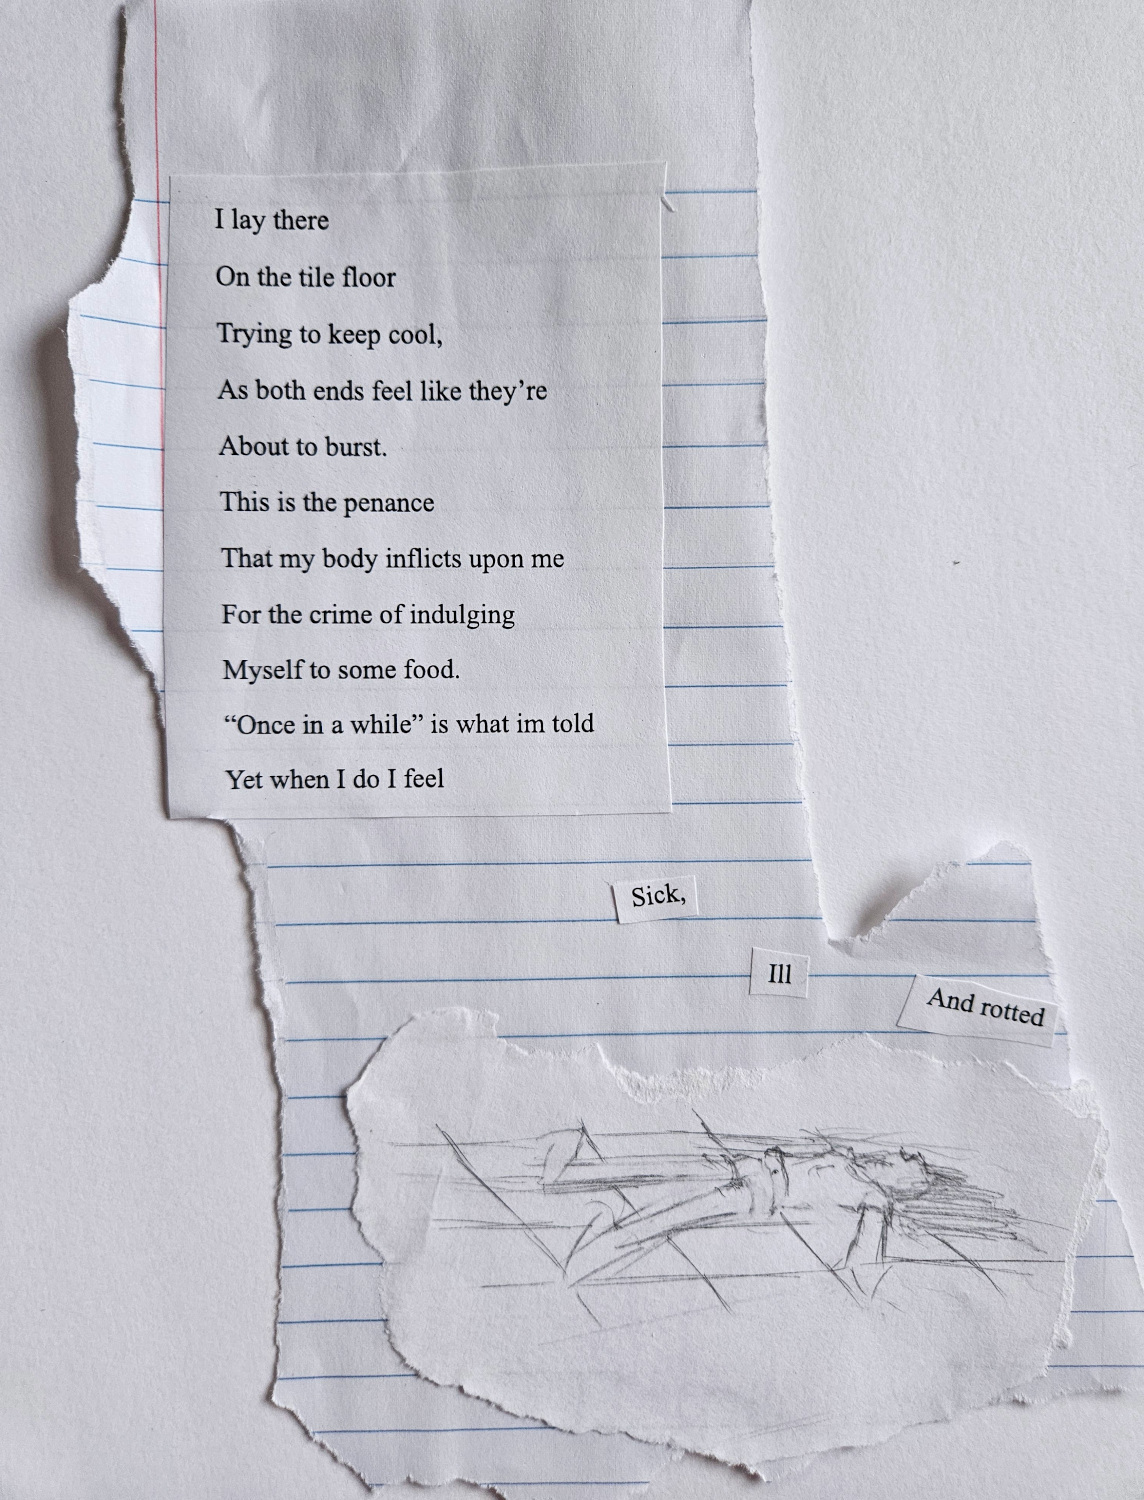 I lay there
On the tile floor
Trying to keep cool,
As both ends feel like they’re
About to burst.
This is the penance
That my body inflicts upon me
For the crime of indulging
Myself to some food.
“Once in a while” is what im told
Yet when I do I feel
Sick,
Ill
And rotted